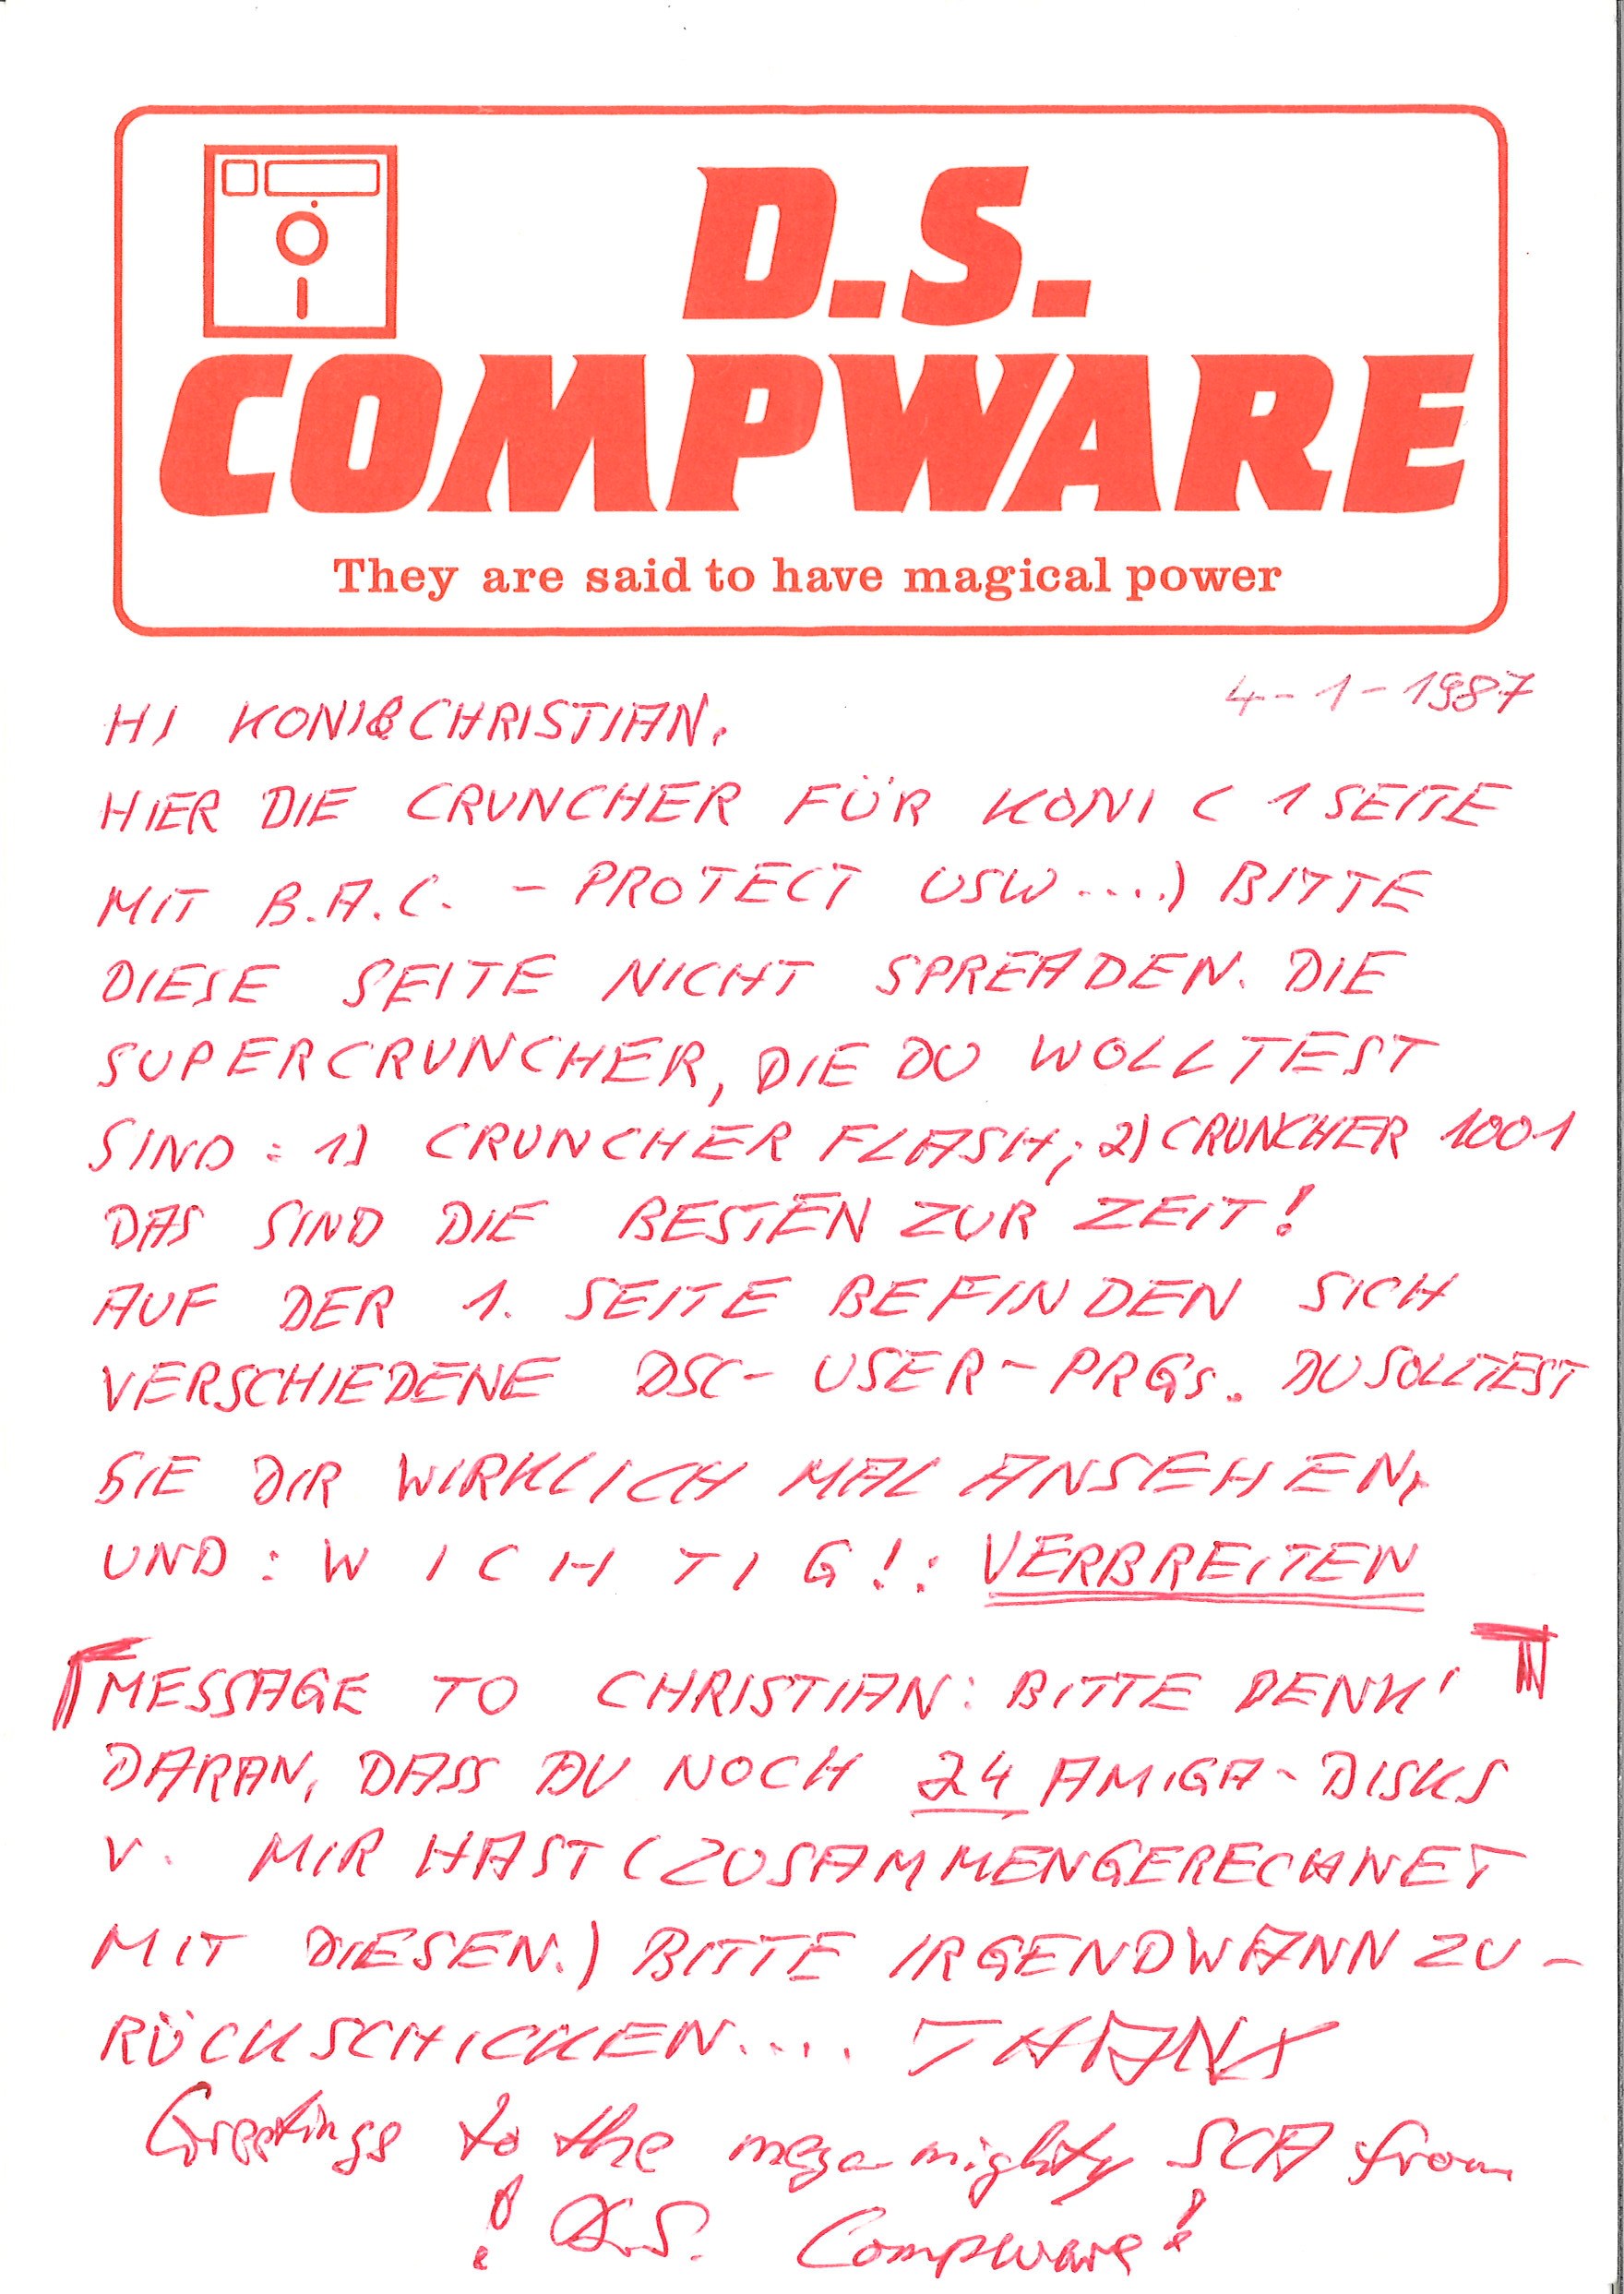 D.S.
COMPWARE
They are said to have magical power
4-1-1987
HI KONI&CHRISTIAN,
HIER DIE CRUNCHER FÜR KONI ( 1 SEITE
MIT B.A.C. - PROTECT USW....) BITTE
DIESE SEITE NICHT SPREADEN. DIE
SUPERCRUNCHER, DIE DU WOLLTEST
SIND: 1) CRUNCHER FLASH; 2) CRUNCHER 1001
DAS SIND DIE BESTEN ZUR ZEIT!
AUF DER 1. SEITE BEFINDEN SICH
VERSCHIEDENE DSC- USER-PRGs. DU SOLLTEST
SIE DIR WIRKLICH MAL ANSEHEN,
UND: W I C H T I G!: VERBREITEN
MESSAGE TO CHRISTIAN: BITTE DENK'
DARAN, DASS DU NOCH 24 AMIGA-DISKS
V. MIR HAST (ZUSAMMENGERECHNET
MIT DIESEN.) BITTE IRGENDWANN ZU-
RÜCKSCHICKEN.... THANX
Greetings to the mega mighty SCA from
! D.S. Compware!